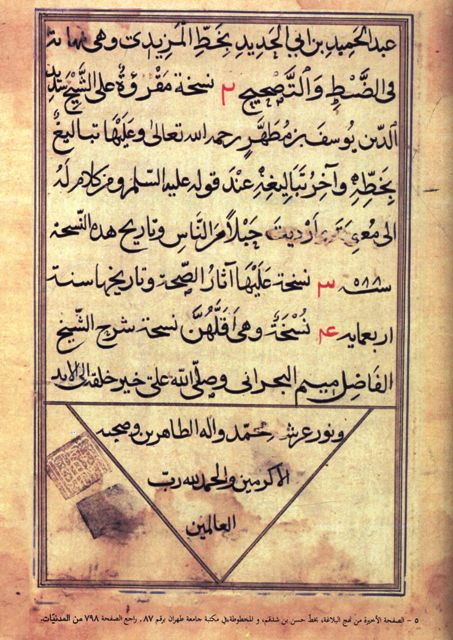 عبد الحميد بن ابي الحديد بخط المزيدي وهي نهاية
في الضبط والتصحيح ٢ نسخة مقروة على الشيخ سديد
الدين يوسف بن مطهر رحمه الله تعالى وعليها تباليغ
بخطه وآخر تباليغه عند قوله عليه السلم ومن كلام له
الى معوية ارديت جيلا من الناس وتاريخ هذه النسخة
سنة ٥٨٨ ٣ نسخة عليها آثار الصحة وتاريخها سنة
اربعمايه ٤ نسخة وهي اقلهن نسخة شرح الشيخ
الفاضل ميثم البحراني وصلى الله على خير خلقه الى الابد
ونور عرشه محمد واله الطاهرين وصحبه
الاكرمين والحمد لله رب
العالمين
٥ - الصفحة الأخيرة من نهج البلاغة، بخط حسن بن شدقم، و المخطوطة في مكتبة جامعة طهران برقم ٨٧. راجع الصفحة ٧٩٨ من المدنيات.